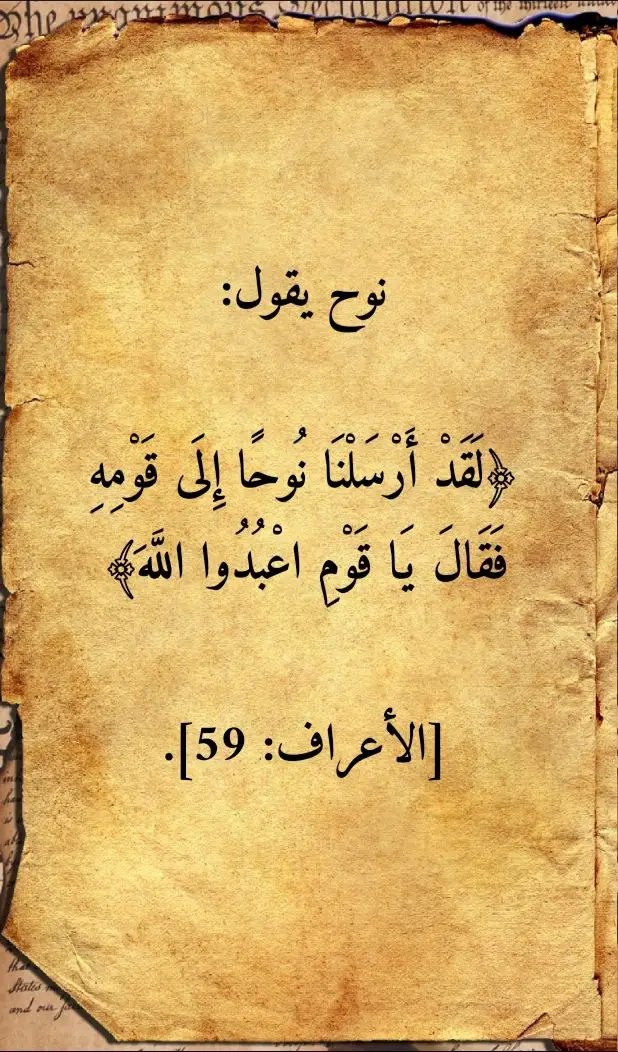 The anonymous Declaration of the thirteen united
نوح يقول:
﴿لَقَدْ أَرْسَلْنَا نُوحًا إِلَى قَوْمِهِ
فَقَالَ يَا قَوْمِ اعْبُدُوا اللَّهَ﴾
[الأعراف: 59].
that
States
and our